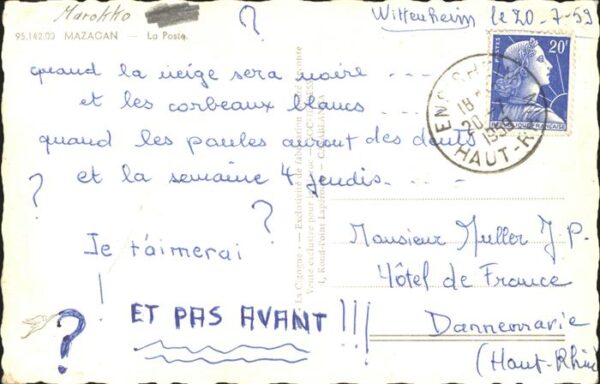 Marokko
Wittenheim le 20-7-59
95.142.03 MAZAGAN — La Poste.
quand la neige sera noire ...
et les corbeaux blancs ...
quand les poules auront des dents
? et la semaine 4 jeudis...
?
?
Je t'aimerai
!
ET PAS AVANT !!!
?
Monsieur Muller J. P.
Hôtel de France
Dannemarie
(Haut-Rhin)
20F
POSTES
18 H
20-7
1959
HAUT-RHIN
La Cigogne
CASABLANCA